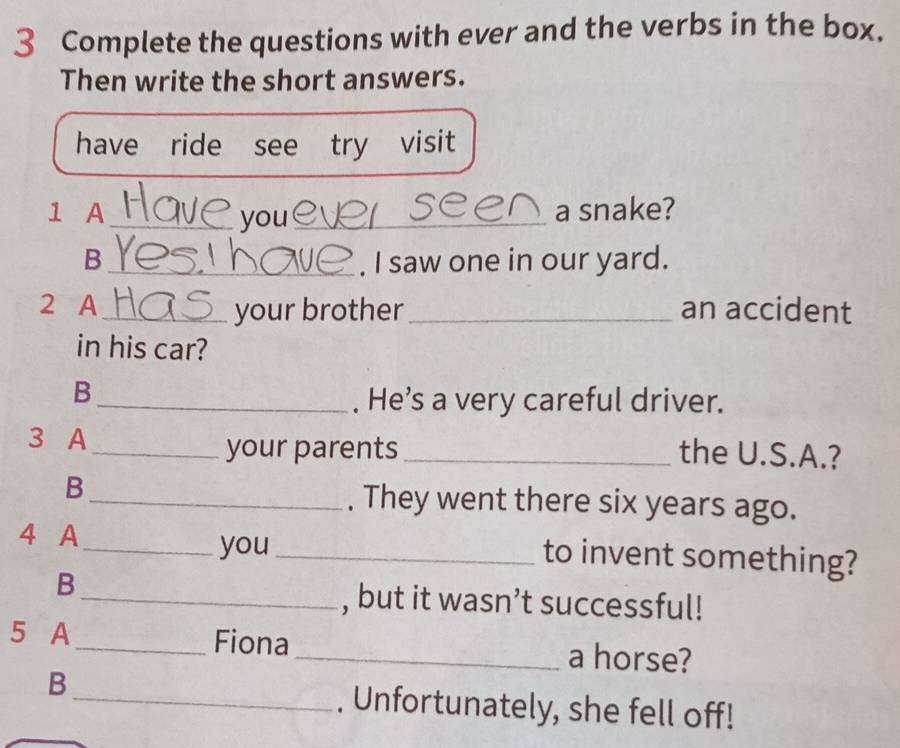 3 Complete the questions with ever and the verbs in the box.
Then write the short answers.
have ride see try visit
1 A Have you ever seen a snake?
B Yes, I have. I saw one in our yard.
2 A Has your brother ____________ an accident
in his car?
B ____________. He's a very careful driver.
3 A ______ your parents ____________ the U.S.A.?
B ____________. They went there six years ago.
4 A ______ you ____________ to invent something?
B ____________, but it wasn't successful!
5 A ______ Fiona ____________ a horse?
B ____________. Unfortunately, she fell off!